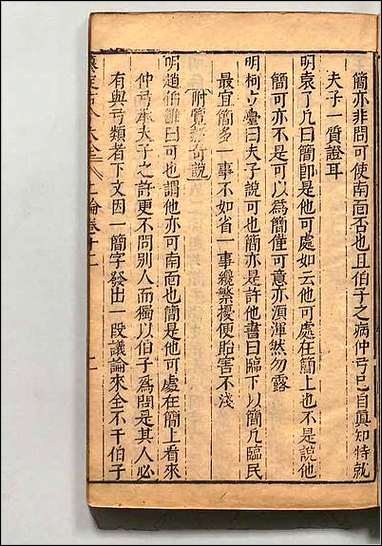 簡亦非問可使南面否也且伯子之病仲弓已自眞知特就
夫子一質證耳
明袁了凡曰簡卽是他可處如云他可處在簡上也不是說他
簡可亦不是可以爲簡僅可意亦須渾然勿露
明柯立臺曰夫子說可也簡亦是許他書曰臨下以簡凡臨民
最宜簡多一事不如省一事纔繁擾便貽害不淺
附覽
明趙伯雝曰可也謂他亦可南面也簡是他可處在簡上看來
仲弓承夫子之許更不問別人而獨以伯子爲問是其人必
有與弓類者下文因一簡字發出一段議論來全不干伯子
二論卷十二